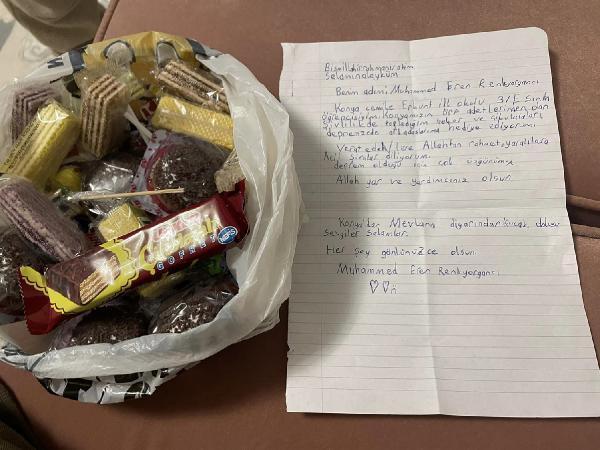 Bismillahirrahmanirahim
Selamünaleyküm
Benim adım Muhammed Eren Renkyorganci
Konya cemile Erkunt ilk okulu 3/E Sınıfı
öğrencisiyim Konyamızın örf adetlerimen olan
şivlilikde topladığım şeker ve çikolataları
depremzede arkadaşlarıma hediye ediyorum
Vefat edenlere Allahtan rahmet yaralılara
Acil şifalar diliyorum
deprem olduğu için çok üzgünüm
Allah yar ve yardımcınız olsun
Konya'dan Mevlana diyarından kucak dolusu
Sevgiler Selamlar
Her şey gönlünüzce olsun
Muhammed Eren Renkyorgancı
GOFRET